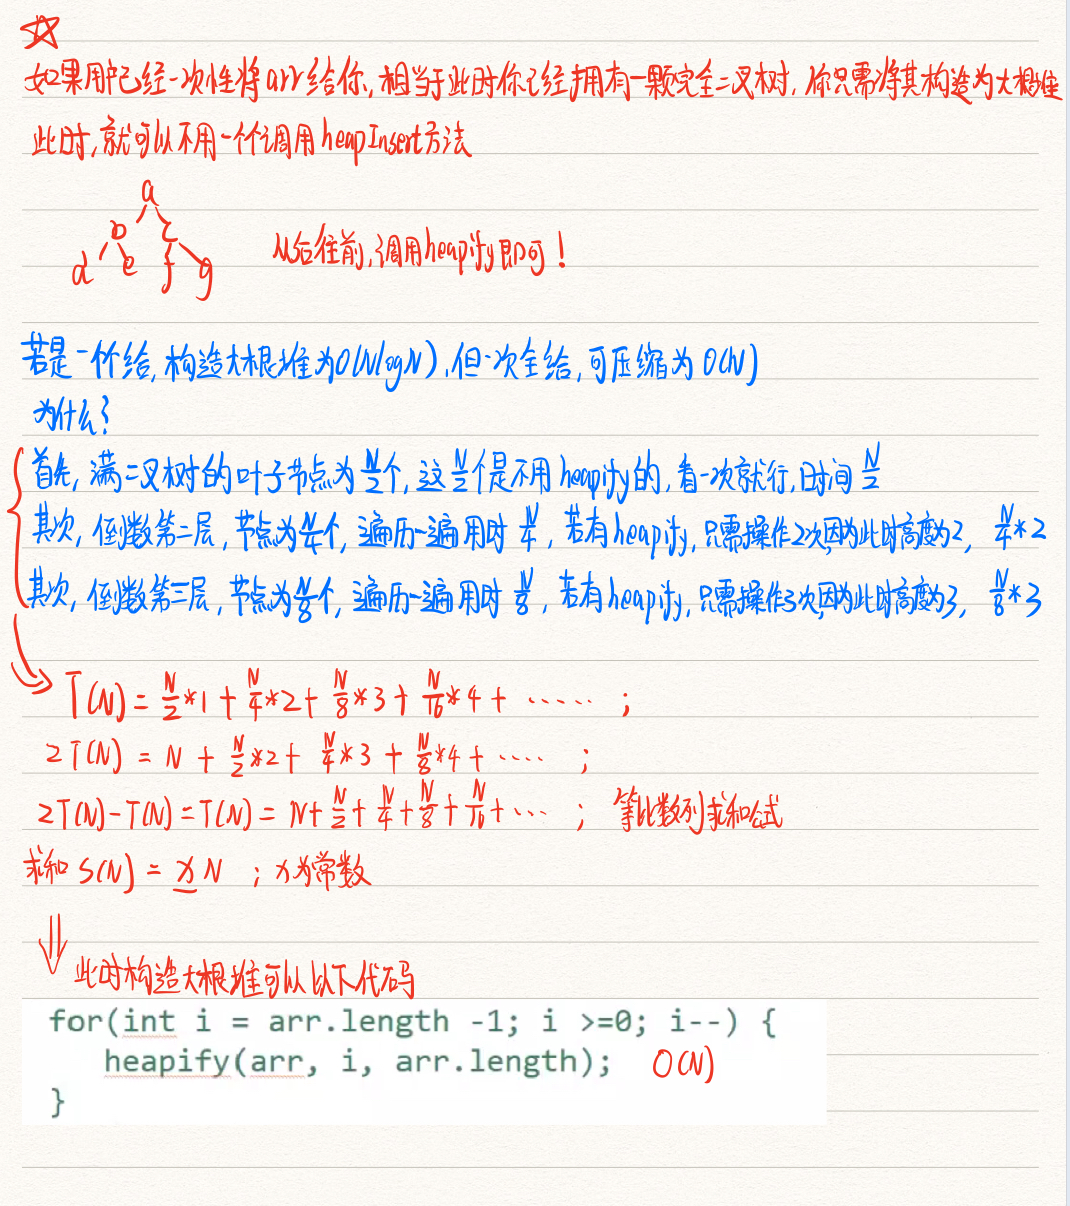 如果用户已经一次性将arr给你,相当于此时你已经拥有一颗完全二叉树,你只需将其构造为大根堆
此时,就可以不用一个个调用heapInsert方法
a
b c
d e f g
从后往前,调用heapify即可!
若是一个个给,构造大根堆为O(NlogN),但一次全给,可压缩为O(N)
为什么?
首先,满二叉树的叶子节点为N/2个,这N/2个是不用heapify的,看一次就行,时间N/2
其次,倒数第二层,节点为N/4个,遍历一遍用时N/4,若有heapify,只需操作2次,因为此时高度为2,N/4*2
其次,倒数第三层,节点为N/8个,遍历一遍用时N/8,若有heapify,只需操作3次,因为此时高度为3,N/8*3
T(N)=N/2*1+N/4*2+N/8*3+N/16*4+······;
2T(N)=N+N/2*2+N/4*3+N/8*4+····;
2T(N)-T(N)=T(N)=N+N/2+N/4+N/8+N/16+···; 等比数列求和公式
求和S(N)=xN ;x为常数
此时构造大根堆可以以下代码
for(int i = arr.length -1; i >=0; i--) {
heapify(arr, i, arr.length); O(N)
}